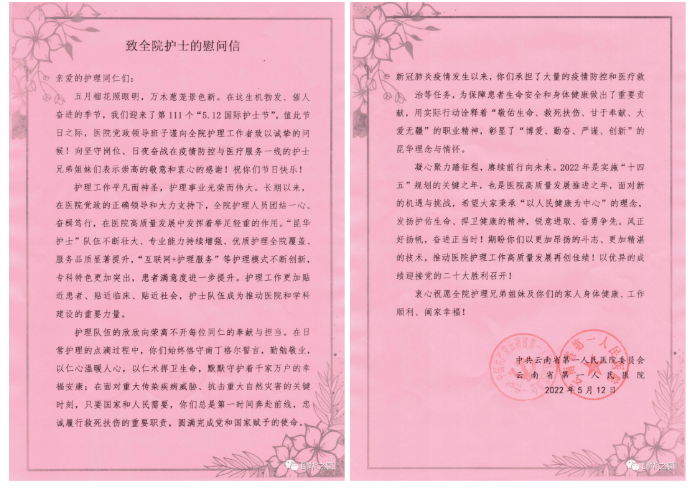 致全院护士的慰问信
亲爱的护理同仁们：
五月榴花照眼明，万木葱茏景色新。在这生机勃发、催人
奋进的季节，我们迎来了第 111 个“5.12 国际护士节”。值此节
日之际，医院党政领导班子谨向全院护理工作者致以诚挚的问
候！向坚守岗位、日夜奋战在疫情防控与医疗服务一线的护士
兄弟姐妹们表示崇高的敬意和衷心的感谢！祝你们节日快乐！
护理工作平凡而神圣，护理事业光荣而伟大。长期以来，
在医院党政的正确领导和大力支持下，全院护理人员团结一心、
奋楫笃行，在医院高质量发展中发挥着举足轻重的作用。“昆华
护士”队伍不断壮大、专业能力持续增强、优质护理全院覆盖、
服务品质显著提升，“互联网+护理服务”等护理模式不断创新，
专科特色更加突出，患者满意度进一步提升。护理工作更加贴
近患者、贴近临床、贴近社会，护士队伍成为推动医院和学科
建设的重要力量。
护理队伍的欣欣向荣离不开每位同仁的奉献与担当。在日
常护理的点滴过程中，你们始终恪守南丁格尔誓言，勤勉敬业，
以仁心温暖人心，以仁术捍卫生命，默默守护着千家万户的幸
福安康；在面对重大传染疾病威胁、抗击重大自然灾害的关键
时刻，只要国家和人民需要，你们总是第一时间奔赴前线，忠
诚履行救死扶伤的重要职责，圆满完成党和国家赋予的使命。
新冠肺炎疫情发生以来，你们承担了大量的疫情防控和医疗救
治等任务，为保障患者生命安全和身体健康做出了重要贡
献，用实际行动诠释着“敬佑生命、救死扶伤、甘于奉献、大
爱无疆”的职业精神，彰显了“博爱、勤奋、严谨、创新”的
昆华理念与情怀。
凝心聚力踏征程，赓续前行向未来。2022 年是实施“十四
五”规划的关键之年，也是医院高质量发展推进之年，面对新
的机遇与挑战，希望大家秉承“以人民健康为中心”的理念，
发扬护佑生命、捍卫健康的精神，锐意进取、奋勇争先。风正
好扬帆，奋进正当时！期盼你们以更加昂扬的斗志、更加精湛
的技术，推动医院护理工作高质量发展再创佳绩！以优异的成
绩迎接党的二十大胜利召开！
衷心祝愿全院护理兄弟姐妹及你们的家人身体健康、工作
顺利、阖家幸福！
中共云南省第一人民医院委员会
云南省第一人民医院
2022 年 5 月 12 日